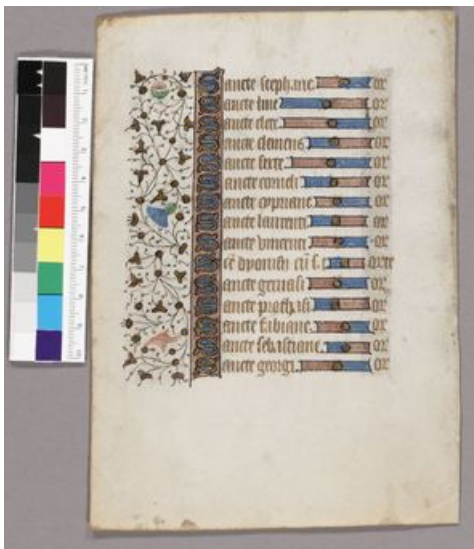 Sancte stephane or
Sancte line or
Sancte clete or
Sancte clemens or
Sancte sexte or
Sancte corneli or
Sancte cypriane or
Sancte laurenti or
Sancte vincenti or
Sce dyonisi cu s. orate
Sancte geruasi or
Sancte prothasi or
Sancte fabiane or
Sancte sebastiane or
Sancte georgi or